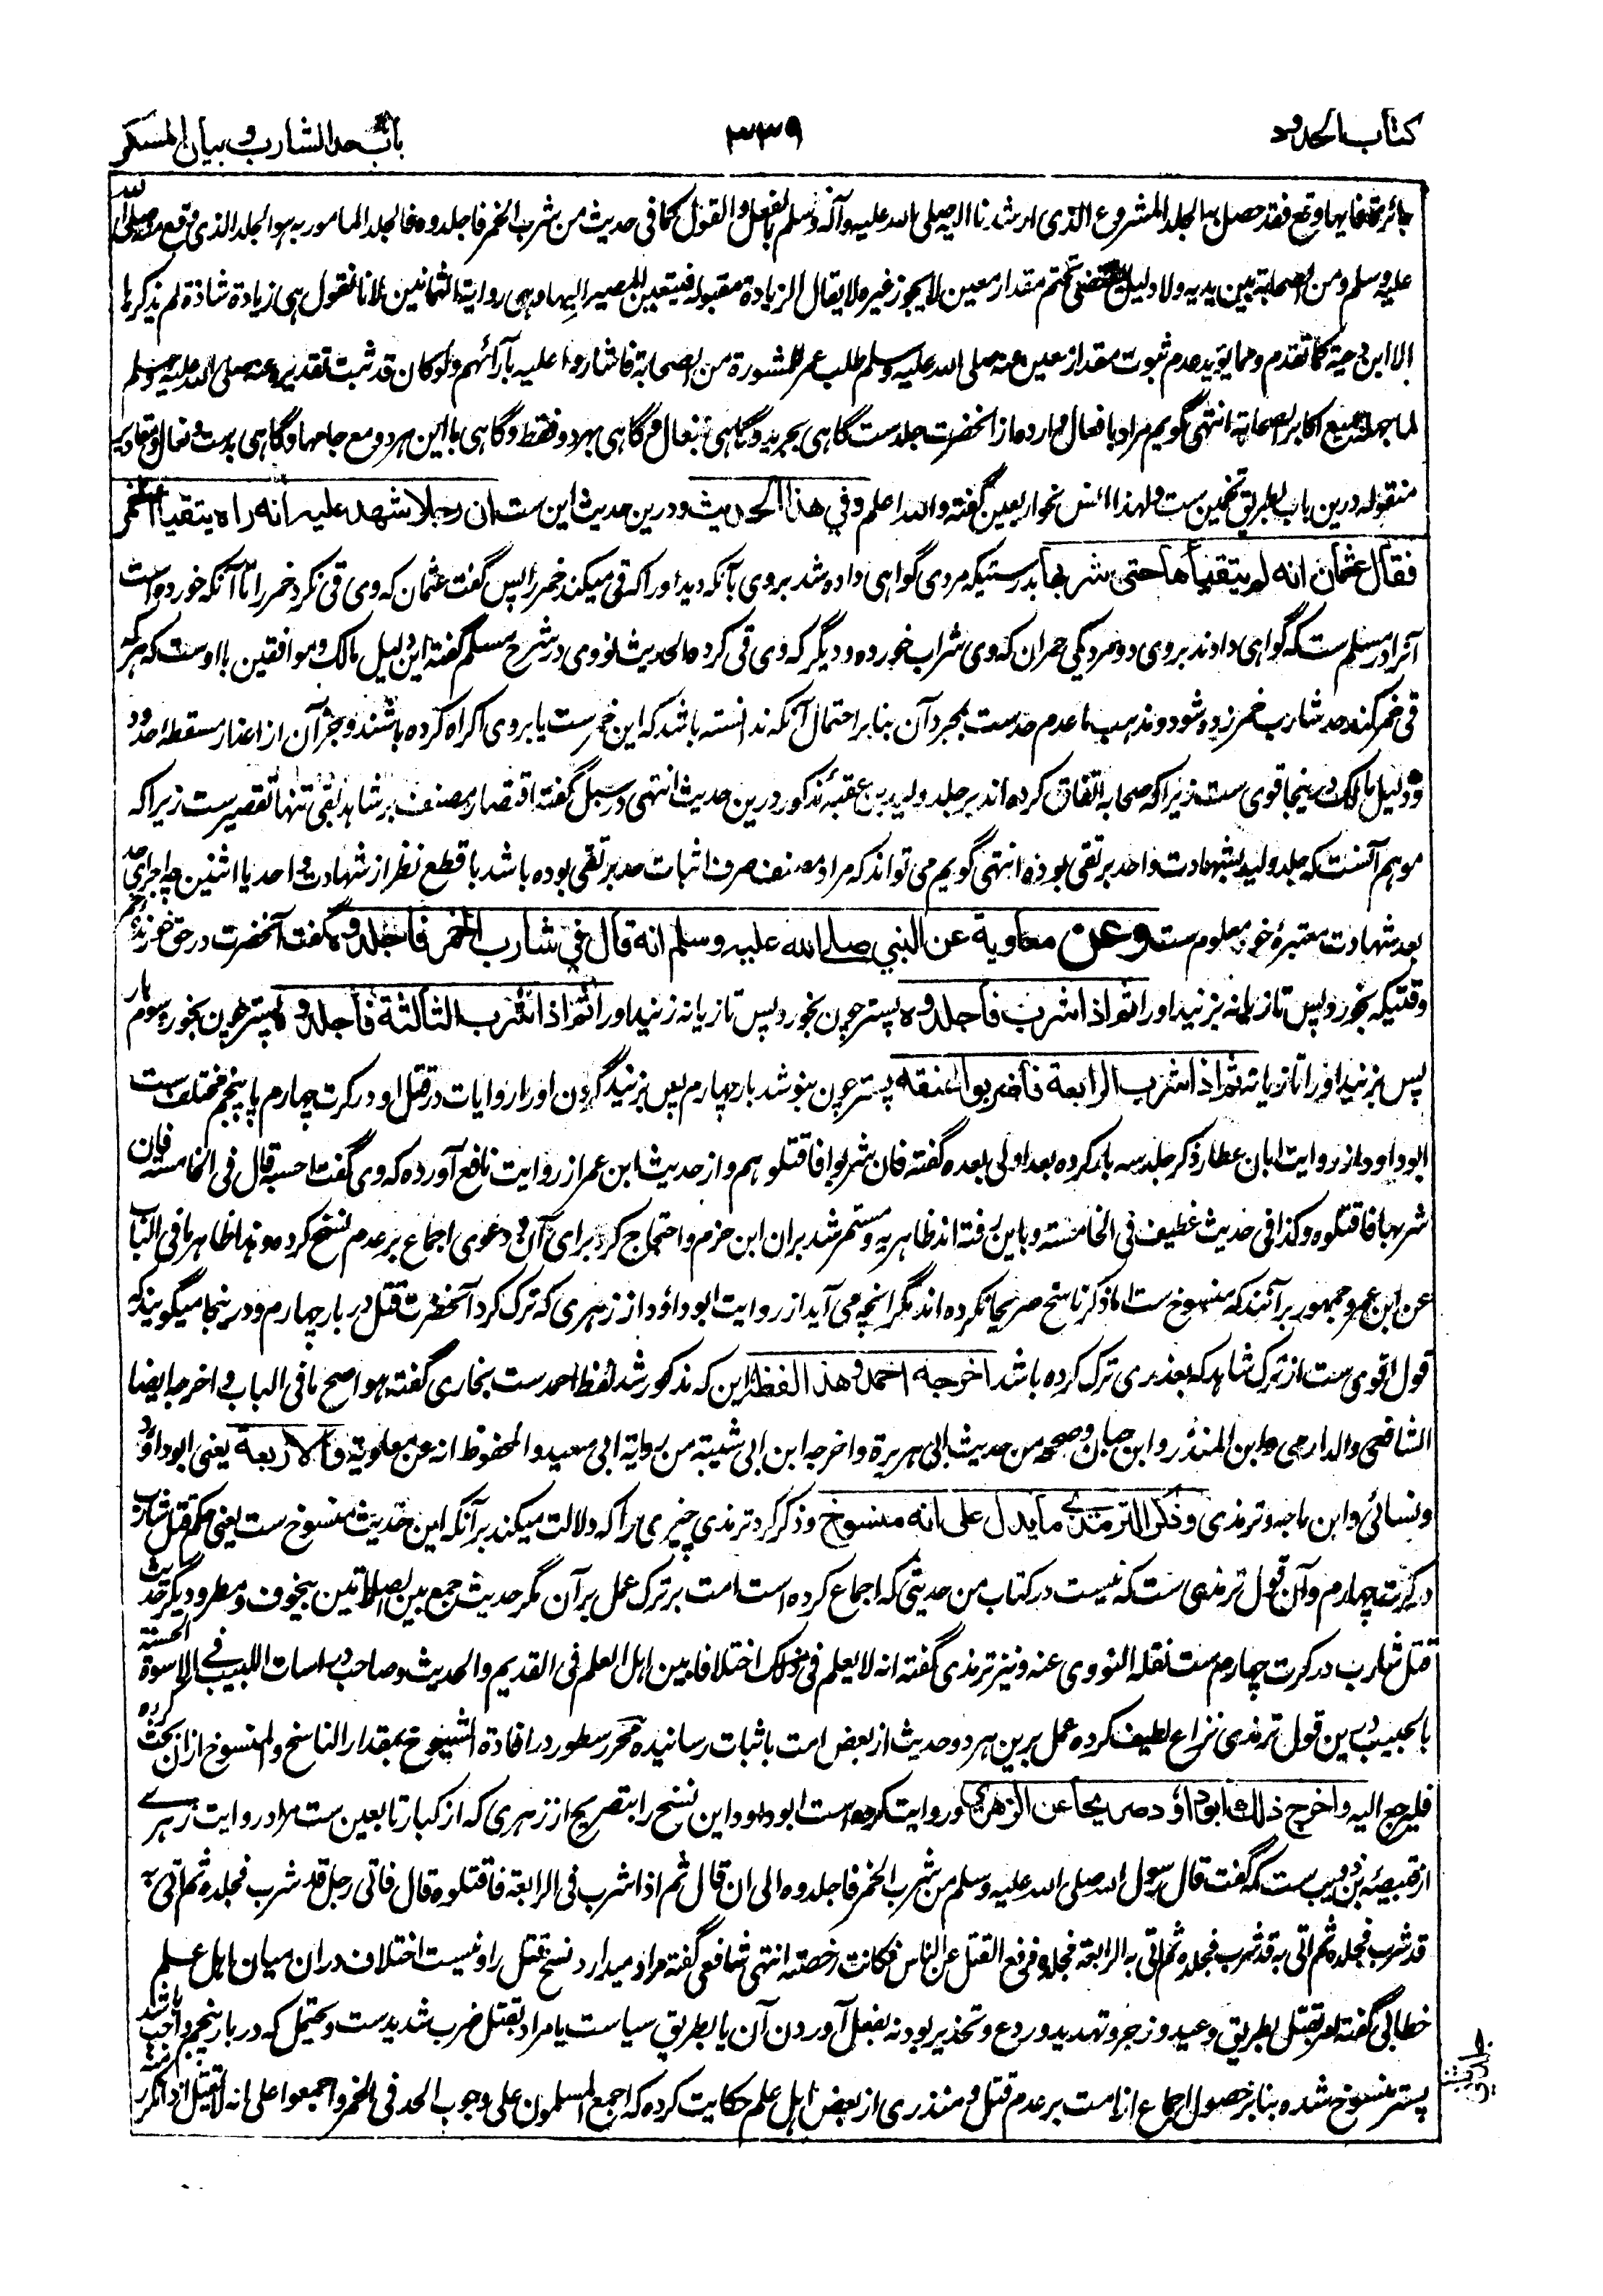 كتاب الحدود
٣٣٩
باب حد الشارب وبيان المسكر
جائز فايهما وقع فقد حصل به الجلد المشروع الذی ارشدنا اليه صلی الله عليه وآله وسلم بالفعل والقول كما فی حديث من شرب الخمر فاجلدوه فالجلد المامور به هو الجلد الذی وقع منه صلی الله
عليه وسلم ومن الصحابة بين يديه ولا دليل يقتضی تحتم مقدار معين لا يجوز غيره لا يقال الزيادة مقبولة فيتعين المصير اليها وهی رواية الثمانين لانا نقول هی زيادة شاذة لم يذكرها
الا ابن دحية كما تقدم ومما يؤيد عدم ثبوت مقدار معين عنه صلی الله عليه وسلم طلب عمر للمشورة من الصحابة فاشاروا عليه بآرائهم ولو كان قد ثبت تقديره عنه صلی الله عليه وسلم
لما جهله جميع اكابر الصحابة انتهی گويم مراد بافعال وارده از آنحضرت جلد ست گاهی بجريد و گاهی بنعال و گاهی بهر دو فقط و گاهی با اين هر دو مع جامها و گاهی بدست و نعال و مقادير
منقوله درين باب بطريق تخمين ست ولهذا انس نحو اربعين گفته والله اعلم وفي هذا الحديث ودرين حديث اين ست ان رجلا شهد عليه انه راه يتقيأ الخمر
فقال عثمان انه لم يتقيأها حتى شربها بدرستيكه مردی گواهی داده شد بروی بآنكه ديد او را كه قی ميكند خمر را پس گفت عثمان كه وی قی نكرد خمر را تا آنكه خورده است
آنرا در مسلم ست كه گواهی دادند بروی دو مرد يكی حمران كه وی شراب خورده و ديگر كه وی قی كرده الحديث نووی در شرح مسلم گفته اين دليل مالك و موافقين با اوست كه هر كه
قی خمر كند حد شارب خمر زده شود و مذهب ما عدم حد ست بمجرد آن بنا بر احتمال آنكه ندانسته باشد كه اين خمر ست يا بروی اكراه كرده باشند و جز آن از اعذار مسقطه حدود
و دليل مالك درينجا قوی ست زيرا كه صحابه اتفاق كرده اند بر جلد وليد بن عقبه مذكور درين حديث انتهی در سبل گفته اقتصار مصنف بر شاهد قی تنها تقصير ست زيرا كه
موهم آنست كه جلد وليد بشهادت واحد بر تقی بوده انتهی گويم می تواند كه مراد مصنف صرف اثبات حد بر تقی بوده باشد با قطع نظر از شهادت واحد يا اثنين چه اجرای حد
بعد شهادت معتبره خود معلوم ست وعن معاوية عن النبي صلى الله عليه وسلم انه قال في شارب الخمر فاجلدوه گفت آنحضرت در حق خورنده خمر
وقتيكه بخورد پس تازيانه بزنيد او را ثم اذا شرب فاجلدوه پستر چون بخورد پس تازيانه زنيد او را ثم اذا شرب الثالثة فاجلدوه پستر چون بخورد سوم بار
پس بزنيد او را تازيانه ثم اذا شرب الرابعة فاضربوا عنقه پستر چون بنوشد بار چهارم پس بزنيد گردن او را روايات در قتل او در كرت چهارم يا پنجم مختلف ست
ابو داود از روايت ابان عطار ذكر جلد سه بار كرده بعد اولی بعده گفته فان شربوا فاقتلوهم و از حديث ابن عمر از روايت نافع آورده كه وی گفت احسبه قال فی الخامسة فان
شربها فاقتلوه وكذا فی حديث غطيف فی الخامسة و باين رفته اند ظاهريه و مستمر شد بران ابن حزم و احتجاج كرد برای آن و دعوی اجماع بر عدم نسخ كرده و هذا ظاهر ما فی الباب
عن ابن عمر و جمهور بر آنند كه منسوخ ست اما ذكر ناسخ صريحا نكرده اند مگر انچه می آيد از روايت ابو داؤد از زهری كه ترك كرد آنحضرت قتل در بار چهارم و درينجا ميگويند كه
قول اقوی ست از ترك شايد كه بعذری ترك كرده باشد اخرجه احمد وهذا لفظه اين كه مذكور شد لفظ احمد ست بخاری گفته هو اصح ما فی الباب و اخرجه ايضا
الشافعی والدارمی وابن المنذر وابن حبان وصححه من حديث ابی هريرة واخرجه ابن ابی شيبة من رواية ابی سعيد والمحفوظ انه عن معاوية والاربعة يعنی ابو داؤد
و نسائی و ابن ماجه و ترمذی وذكر الترمذي ما يدل على انه منسوخ و ذكر كرد ترمذی چيزی را كه دلالت ميكند بر آنكه اين حديث منسوخ ست يعنی حكم قتل شارب
در كرت چهارم و آن قول ترمذی ست كه نيست در كتاب من حديثی كه اجماع كرده است امت بر ترك عمل بر آن مگر حديث جمع بين الصلاتين بيخوف و مطر و ديگر حديث
قتل شارب در كرت چهارم ست نقله النووی عنه و نيز ترمذی گفته انه لا يعلم فی ذلك اختلافا بين اهل العلم فی القديم والحديث و صاحب دراسات اللبيب فی الاسوة الحسنة
بالحبيب درين قول ترمذی نزاع لطيف كرده عمل برين هر دو حديث از بعض امت باثبات رسانيده محرر سطور در افادة الشيوخ بمقدار الناسخ والمنسوخ ازان بحث كرده
فليرجع اليه واخرج ذلك ابو داؤد صريحا عن الزهري و روايت كرده است ابو داود اين نسخ را بتصريح از زهری كه از كبار تابعين ست مراد روايت زهری
از قبيصه بن ذويب ست كه گفت قال رسول الله صلی الله عليه وسلم من شرب الخمر فاجلدوه الی ان قال ثم اذا شرب فی الرابعة فاقتلوه قال فاتی رجل قد شرب فجلده ثم اتی به
قد شرب فجلده ثم اتی به قد شرب فجلده ثم اتی به الرابعة فجلده فرفع القتل عن الناس فكانت رخصة انتهی شافعی گفته مراد ميدارد نسخ قتل را و نيست اختلاف دران ميان اهل علم
خطابی گفته امر بقتل بطريق وعيد و زجر و تهديد و ردع و تحذير بود نه بفعل آوردن آن يا بطريق سياست يا مراد بقتل ضرب شديد ست و محتمل كه در بار پنجم واجب باشد
پستر منسوخ شده بنا بر حصول اجماع از امت بر عدم قتل و منذری از بعض اهل علم حكايت كرده كه اجمع المسلمون علی وجوب الحد فی الخمر واجمعوا علی انه لا يقتل اذا تكرر منه